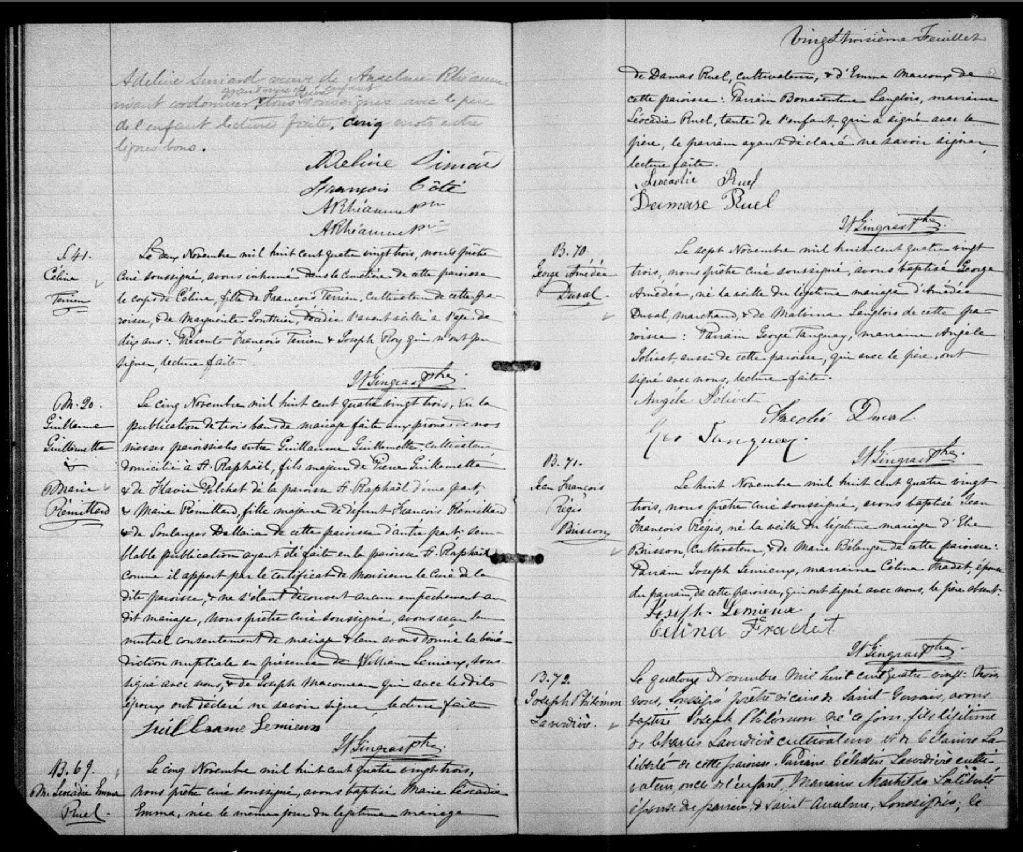 Adeline Simard veuve de Anselme Rhéaume
vivant cordonnier, tous soussignés avec le père
de l'enfant lecture faite, cinq mots entre
lignes bons.
Adeline Simard
François Côté
S 41.
Céline
Terrien
Le deux Novembre mil huit cent quatre vingt trois, nous prêtre
curé soussigné, avons inhumé dans le cimetière de cette paroisse
le corps de Céline, fille de François Terrien, cultivateur de cette pa-
roisse, & de Marguerite Gonthier, décédée l'avant veille à l'âge de
dix ans. Présents François Terrien & Joseph Roy qui n'ont pu
signer, lecture faite.
W Gingras Ptre.
M. 20.
Guillaume
Guillemette
&
Marie
Rémillard
Le cinq Novembre mil huit cent quatre vingt trois, vu la
publication de trois bans de mariage faite aux prônes de nos
messes paroissiales entre Guillaume Guillemette, cultivateur,
domicilié à St Raphaël, fils majeur de Pierre Guillemette
& de Flavie Pelchat de la paroisse St Raphaël d'une part,
& Marie Remillard, fille majeure de défunt François Rémillard
& de Soulanges Dallaire de cette paroisse d'autre part; sem-
blable publication ayant été faite en la paroisse St Raphaël
comme il appert par le certificat de Monsieur le Curé de la
dite paroisse, & ne s'étant découvert aucun empêchement au
dit mariage, nous prêtre curé soussigné, avons reçu leur
mutuel consentement de mariage & leur avons donné la béné-
diction nuptiale en présence de William Lemieux, sous-
signé avec nous, & de Joseph qui avec les dits
époux ont déclaré ne savoir signer, lecture faite
Guillaume Lemieux
W Gingras Ptre.
B. 69.
M. Léocadie Emma
Ruel.
Le cinq Novembre mil huit cent quatre vingt trois,
nous prêtre curé soussigné, avons baptisé Marie Léocadie
Emma, née le même jour du légitime mariage
Vingt troisième Feuillet
de Damas Ruel, cultivateur, & d'Emma Marcoux de
cette paroisse: Parrain Bonaventure Langlois, marraine
Léocadie Ruel, tante de l'enfant, qui a signé avec le
père, le parrain ayant déclaré ne savoir signer,
lecture faite.
Leocadie Ruel
Damase Ruel
W Gingras Ptre.
B. 70
George Amédée
Duval.
Le sept Novembre mil huit cent quatre vingt
trois, nous prêtre curé soussigné, avons baptisé George
Amédée, né la veille du légitime mariage d'Amédée
Duval, marchand, & de Malvina Langlois de cette pa-
roisse: Parrain George Tanguay, marraine Angèle
Joliet, aussi de cette paroisse, qui avec le père, ont
signé avec nous, lecture faite.
Angèle Joliet
Duval
Geo Tanguay
W Gingras Ptre.
B. 71.
Jean François
Régis
Buisson
Le huit Novembre mil huit cent quatre vingt
trois, nous prêtre curé soussigné, avons baptisé Jean
François Régis, né la veille du légitime mariage d'Elie
Buisson, cultivateur, & de Marie Bélanger de cette paroisse:
Parrain Joseph Lemieux, marraine Célina Fradet, épouse
du parrain, de cette paroisse, qui ont signé avec nous, le père absent.
Joseph Lemieux
Célina Fradet
W Gingras Ptre.
B. 72.
Joseph Philémon
Laverdière.
Le quatorze Novembre mil huit cent quatre vingt Trois
nous, soussigné prêtre vicaire de Saint Gervais, avons
baptisé Joseph Philémon né ce jour, fils légitime
de Charles Laverdière cultivateur et de La-
liberté de cette paroisse. Parrain Célestin Laverdière culti-
vateur oncle de l'enfant, Marraine Mathilde Laliberté
épouse du parrain, de Saint Anselme, soussignés; le